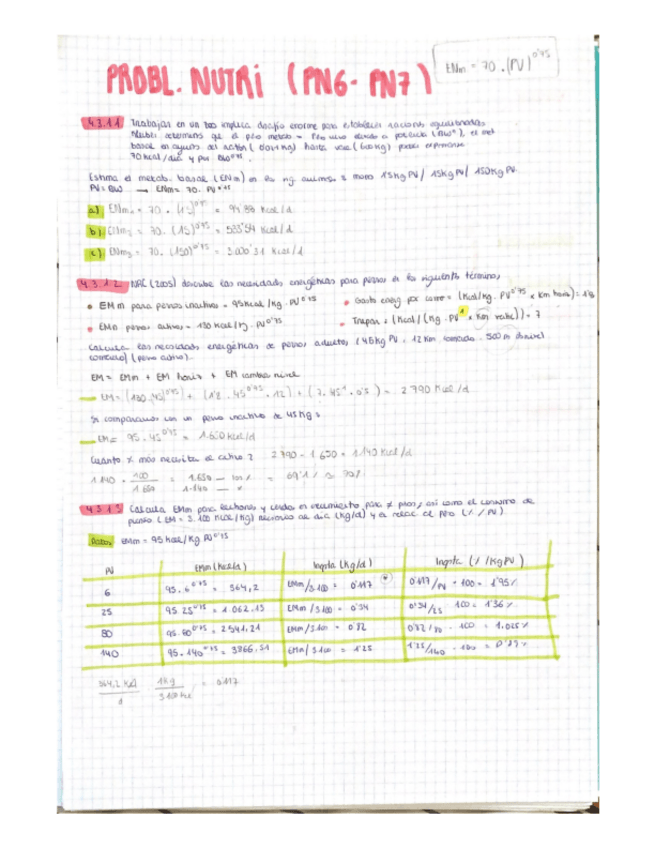 PROBL. NUTRI (PN6 - PN7)
ENm = 70 · (PV)^0'75
4.3.1.1 Trabajar en un zoo implica desafío enorme para establecer raciones equilibradas
basal en ayuno del ratón (0'014 kg) hasta vaca (600 kg) puede expresarse
70 kcal/día y por
Estima el metab. basal (ENm) en los animales 15kg PV / 150kg PV.
PV = BW → ENm = 70 · PV^0'75
a)
b) ENm₂ = 70 · (15)^0'75 = 533'54 kcal/d
c) ENm₃ = 70 · (150)^0'75 = 3.000'31 kcal/d
4.3.1.2 NRC (2005) describe las necesidades energéticas para perros en los siguientes términos
• EMm para perros inactivos = 95 kcal/kg · PV^0'75
• Gasto energ por correr = (kcal/kg · PV^0'75 × km horiz) =
• EMm perros activos = 130 kcal/kg · PV^0'75
• Trepar = (kcal/(kg · PV^1 × km vertic)) = 7
Calcula las necesidades energéticas de perros adultos (45kg PV - 12 km corriendo - 500m desnivel
(perro activo).
EM = EMm + EM horiz + EM cambio nivel
EM = (130 · 45^0'75) + (1'8 · 45^0'75 · 12) + (7 · 45^1 · 0'5) = 2790 kcal/d
Si comparamos con un perro inactivo de 45 kg :
EM = 95 · 45^0'75 = 1.650 kcal/d
Cuanto % más necesita el activo? 2790 - 1.650 = 1.140 kcal/d
1.140 · 100/1.650 = 1.650 — 100% 1.140 — x = 69'1%
4.3.1.3 Calcula EMm para lechones y cerdos en crecimiento para ≠ pesos, así como el consumo de
pienso (EM = 3.100 kcal/kg) necesario al día (kg/d) y en relac. al peso (% / PV)
Datos: EMm = 95 kcal/kg PV^0'75
PV EMm (kcal/d) Ingsta (kg/d) Ingsta (% /kg PV)
6 95 · 6^0'75 = 364,2 EMm/3.100 = 0'117 0'117/PV · 100 = 1'95%
25 95 · 25^0'75 = 1062.15 EMm/3.100 = 0'34 0'34/25 · 100 = 1'36%
80 95 · 80^0'75 = 2541,21 EMm/3.100 = 0'82 0'82/80 · 100 = 1,025%
140 95 · 140^0'75 = 3866,51 EMm/3.100 = 1'25 1'25/140 · 100 = 0'89%
364,2 kcal/d · 1kg/3.100 kcal = 0'117